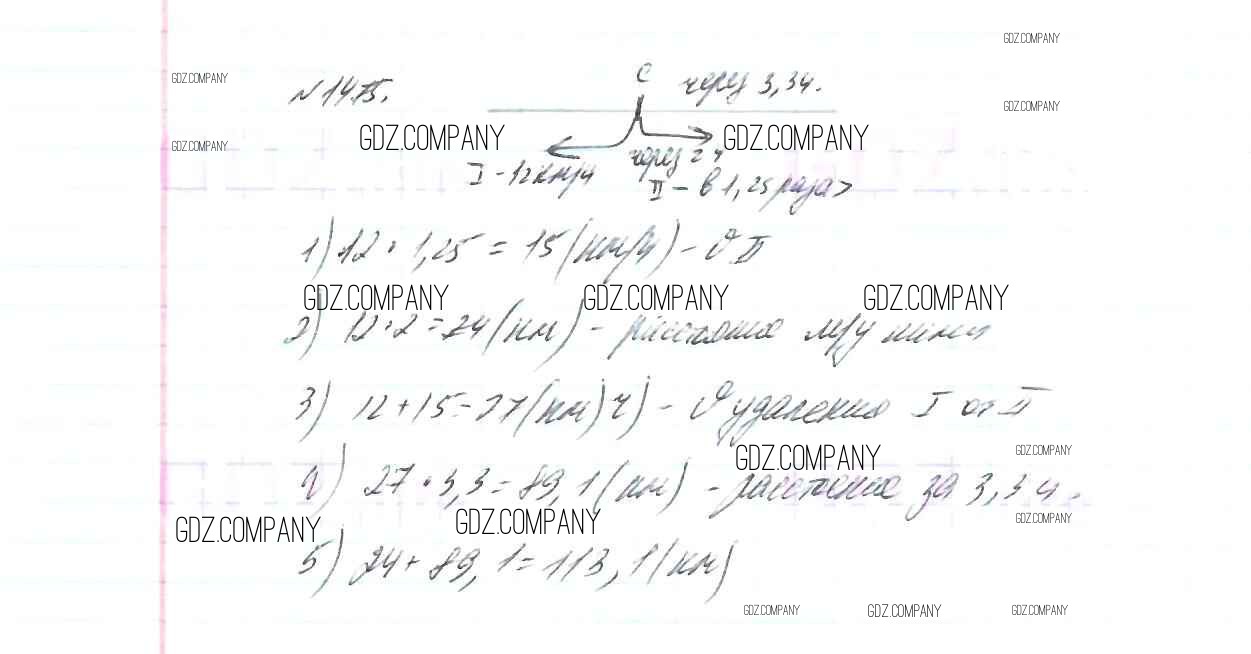 GDZ.COMPANY
C через 3,3ч.
GDZ.COMPANY
№ 1475.
GDZ.COMPANY
GDZ.COMPANY GDZ.COMPANY
GDZ.COMPANY
через 2ч
I - 12км/ч II - в 1,25 раза >
1) 12 · 1,25 = 15 (км/ч) - V II
GDZ.COMPANY GDZ.COMPANY GDZ.COMPANY
2) 12 · 2 = 24 (км) - расстояние м/у ними
3) 12 + 15 = 27 (км/ч) - V удаления I от II
GDZ.COMPANY GDZ.COMPANY
4) 27 · 3,3 = 89,1 (км) - расстояние за 3,3 ч.
GDZ.COMPANY GDZ.COMPANY GDZ.COMPANY
5) 24 + 89,1 = 113,1 (км)
GDZ.COMPANY GDZ.COMPANY GDZ.COMPANY